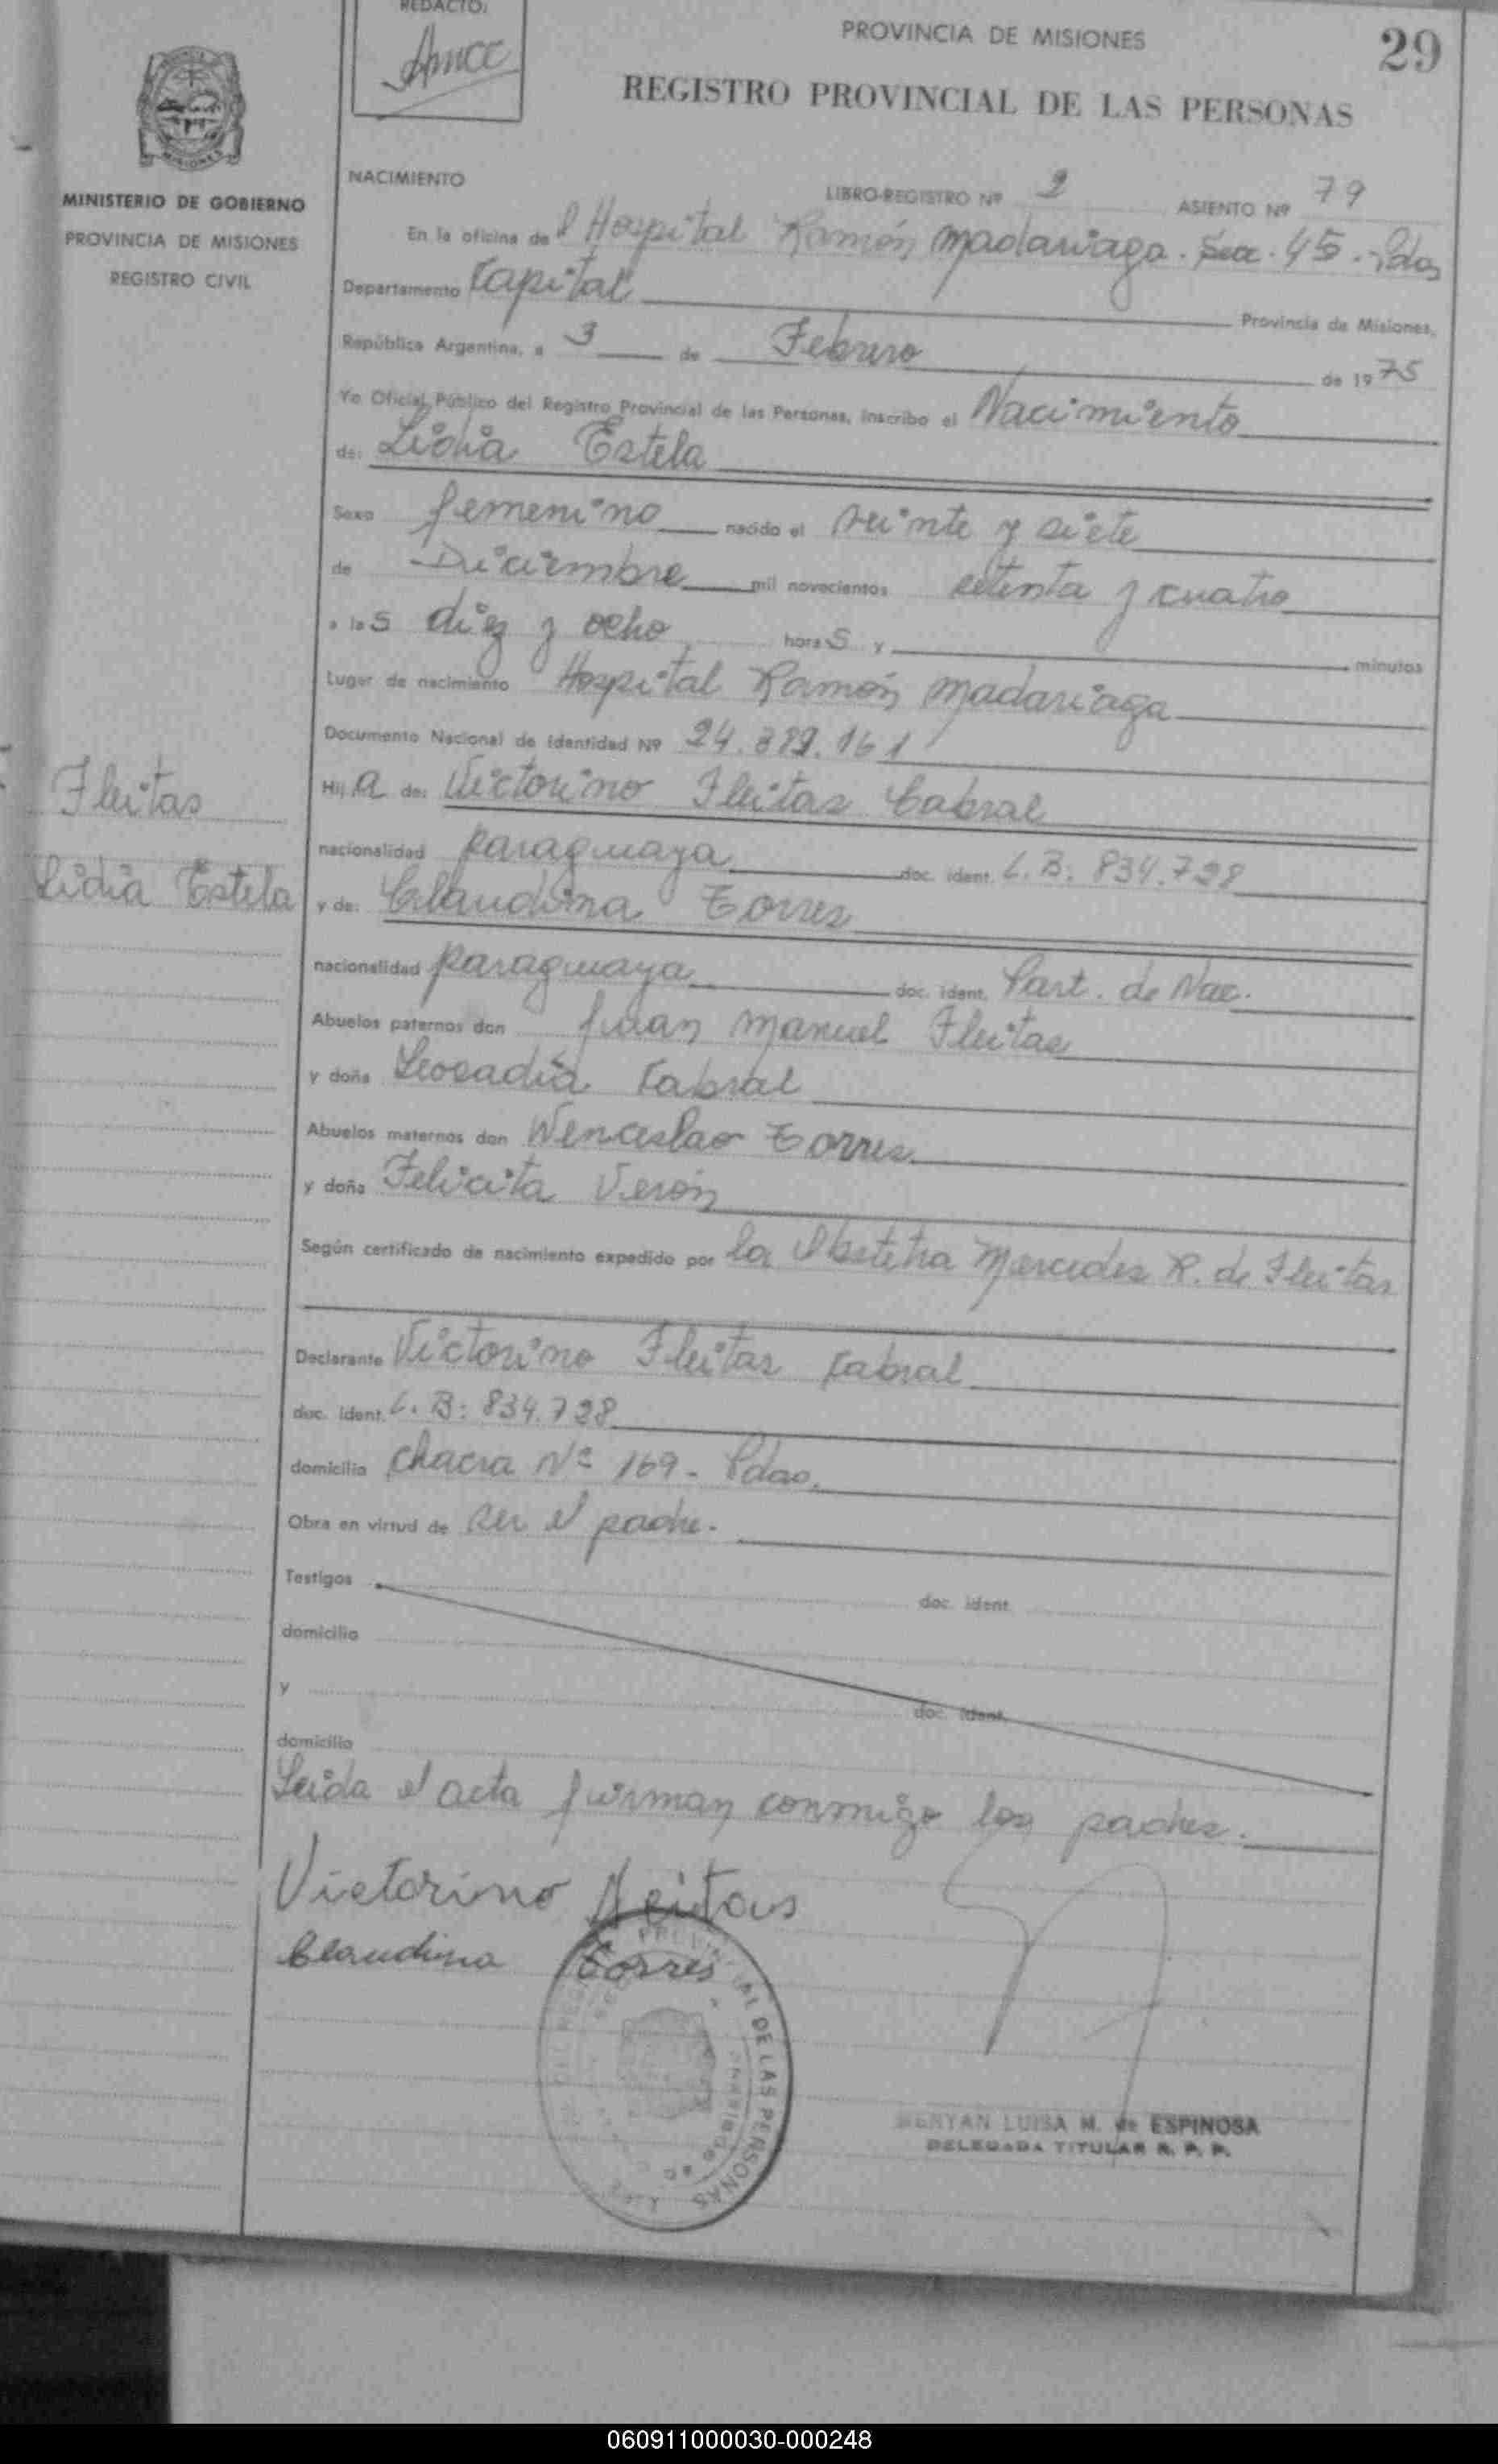 REDACTO:
PROVINCIA DE MISIONES
29
REGISTRO PROVINCIAL DE LAS PERSONAS
MISIONES
MINISTERIO DE GOBIERNO
PROVINCIA DE MISIONES
REGISTRO CIVIL
NACIMIENTO
LIBRO-REGISTRO Nº 2 ASIENTO Nº 79
En la oficina del Hospital Ramón Madariaga. Sec. 45. Pdas
Departamento Capital Provincia de Misiones,
República Argentina, a 3 de Febrero de 1975
Yo Oficial Público del Registro Provincial de las Personas, inscribo el Nacimiento
de: Lidia Estela
Sexo femenino nacido el veinte y siete
de Diciembre mil novecientos setenta y cuatro
a las diez y ocho horas y minutos
Lugar de nacimiento Hospital Ramón Madariaga
Documento Nacional de Identidad Nº 24.389.161
Fleitas
Lidia Estela
Hija de: Victorino Fleitas Cabral
nacionalidad paraguaya doc. ident. C.B: 834.728
y de: Claudina Torres
nacionalidad paraguaya doc. ident. Part. de Nac.
Abuelos paternos don Juan Manuel Fleitas
y doña Leocadia Cabral
Abuelos maternos don Wenceslao Torres
y doña Felicita Verón
Según certificado de nacimiento expedido por la Obstetra Mercedes R. de Fleitas
Declarante Victorino Fleitas Cabral
doc. ident. C.B: 834.728
domicilio Chacra Nº 169 - Pdas.
Obra en virtud de ser el padre.
Testigos doc. ident.
domicilio
y doc. ident.
domicilio
Leida el acta firman conmigo los padres.
Victorino Fleitas
Claudina Torres
LUISA M. de ESPINOSA
DELEGADA TITULAR R. P. P.
DE LAS PERSONAS
060911000030-000248